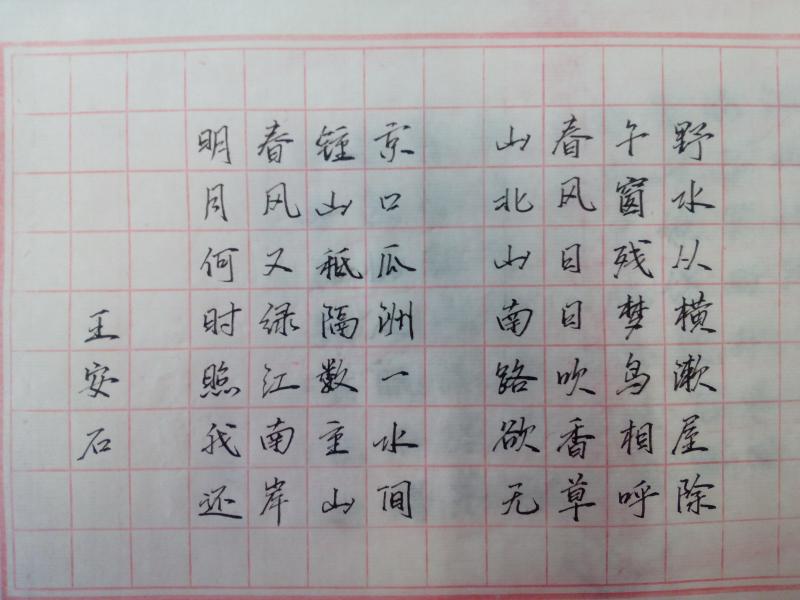 野水从横漱屋除
午窗残梦鸟相呼
春风日日吹香草
山北山南路欲无
京口瓜洲一水间
钟山祗隔数重山
春风又绿江南岸
明月何时照我还
王安石